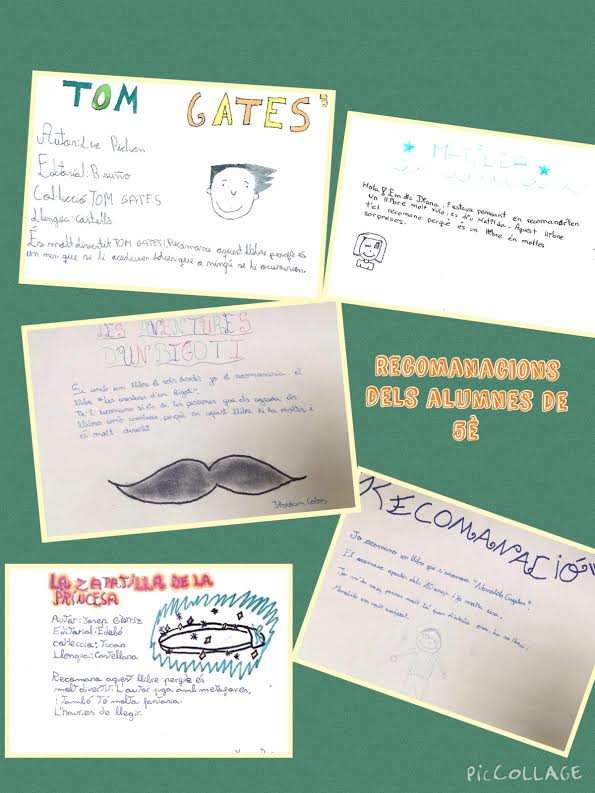 TOM GATES
Autor: Liz Pichon
Editorial: Bruño
Col·lecció: TOM GATES
Llengua: castellà
És molt divertit TOM GATES! Recomano aquest llibre perquè és
un nen que se li acudeixen idees que a ningú se li
MATILDA
Hola! Em dic Diana, i estava pensant en recomanar
un llibre molt xulo, es diu Matilda. Aquest llibre
t'el recomano perquè és un llibre en moltes
sorpreses.
LES AVENTURES
D'UN BIGOTI
Si amb un llibre et vols divertir jo et recomanaria el
llibre "Les aventures d'un Bigoti".
Te'l recomano si ets de les persones que els agrada els
llibres amb aventures, perquè en aquest llibre hi ha moltes, i
és molt divertit.
RECOMANACIONS
DELS ALUMNES DE
5È
RECOMANACIÓ
Jo recomano un llibre que s'anomena
El recomano a partir dels 10 anys
LA ZAPATILLA DE LA
PRINCESA
Autor: Josep Górriz
Editorial: Edebé
col·lecció: Tucan
Llengua: Castellana
Recomano aquest llibre perquè és
molt divertit. L'autor juga amb metàfores,
i també té molta fantasia.
L'haur.es de llegir.
PIC COLLAGE